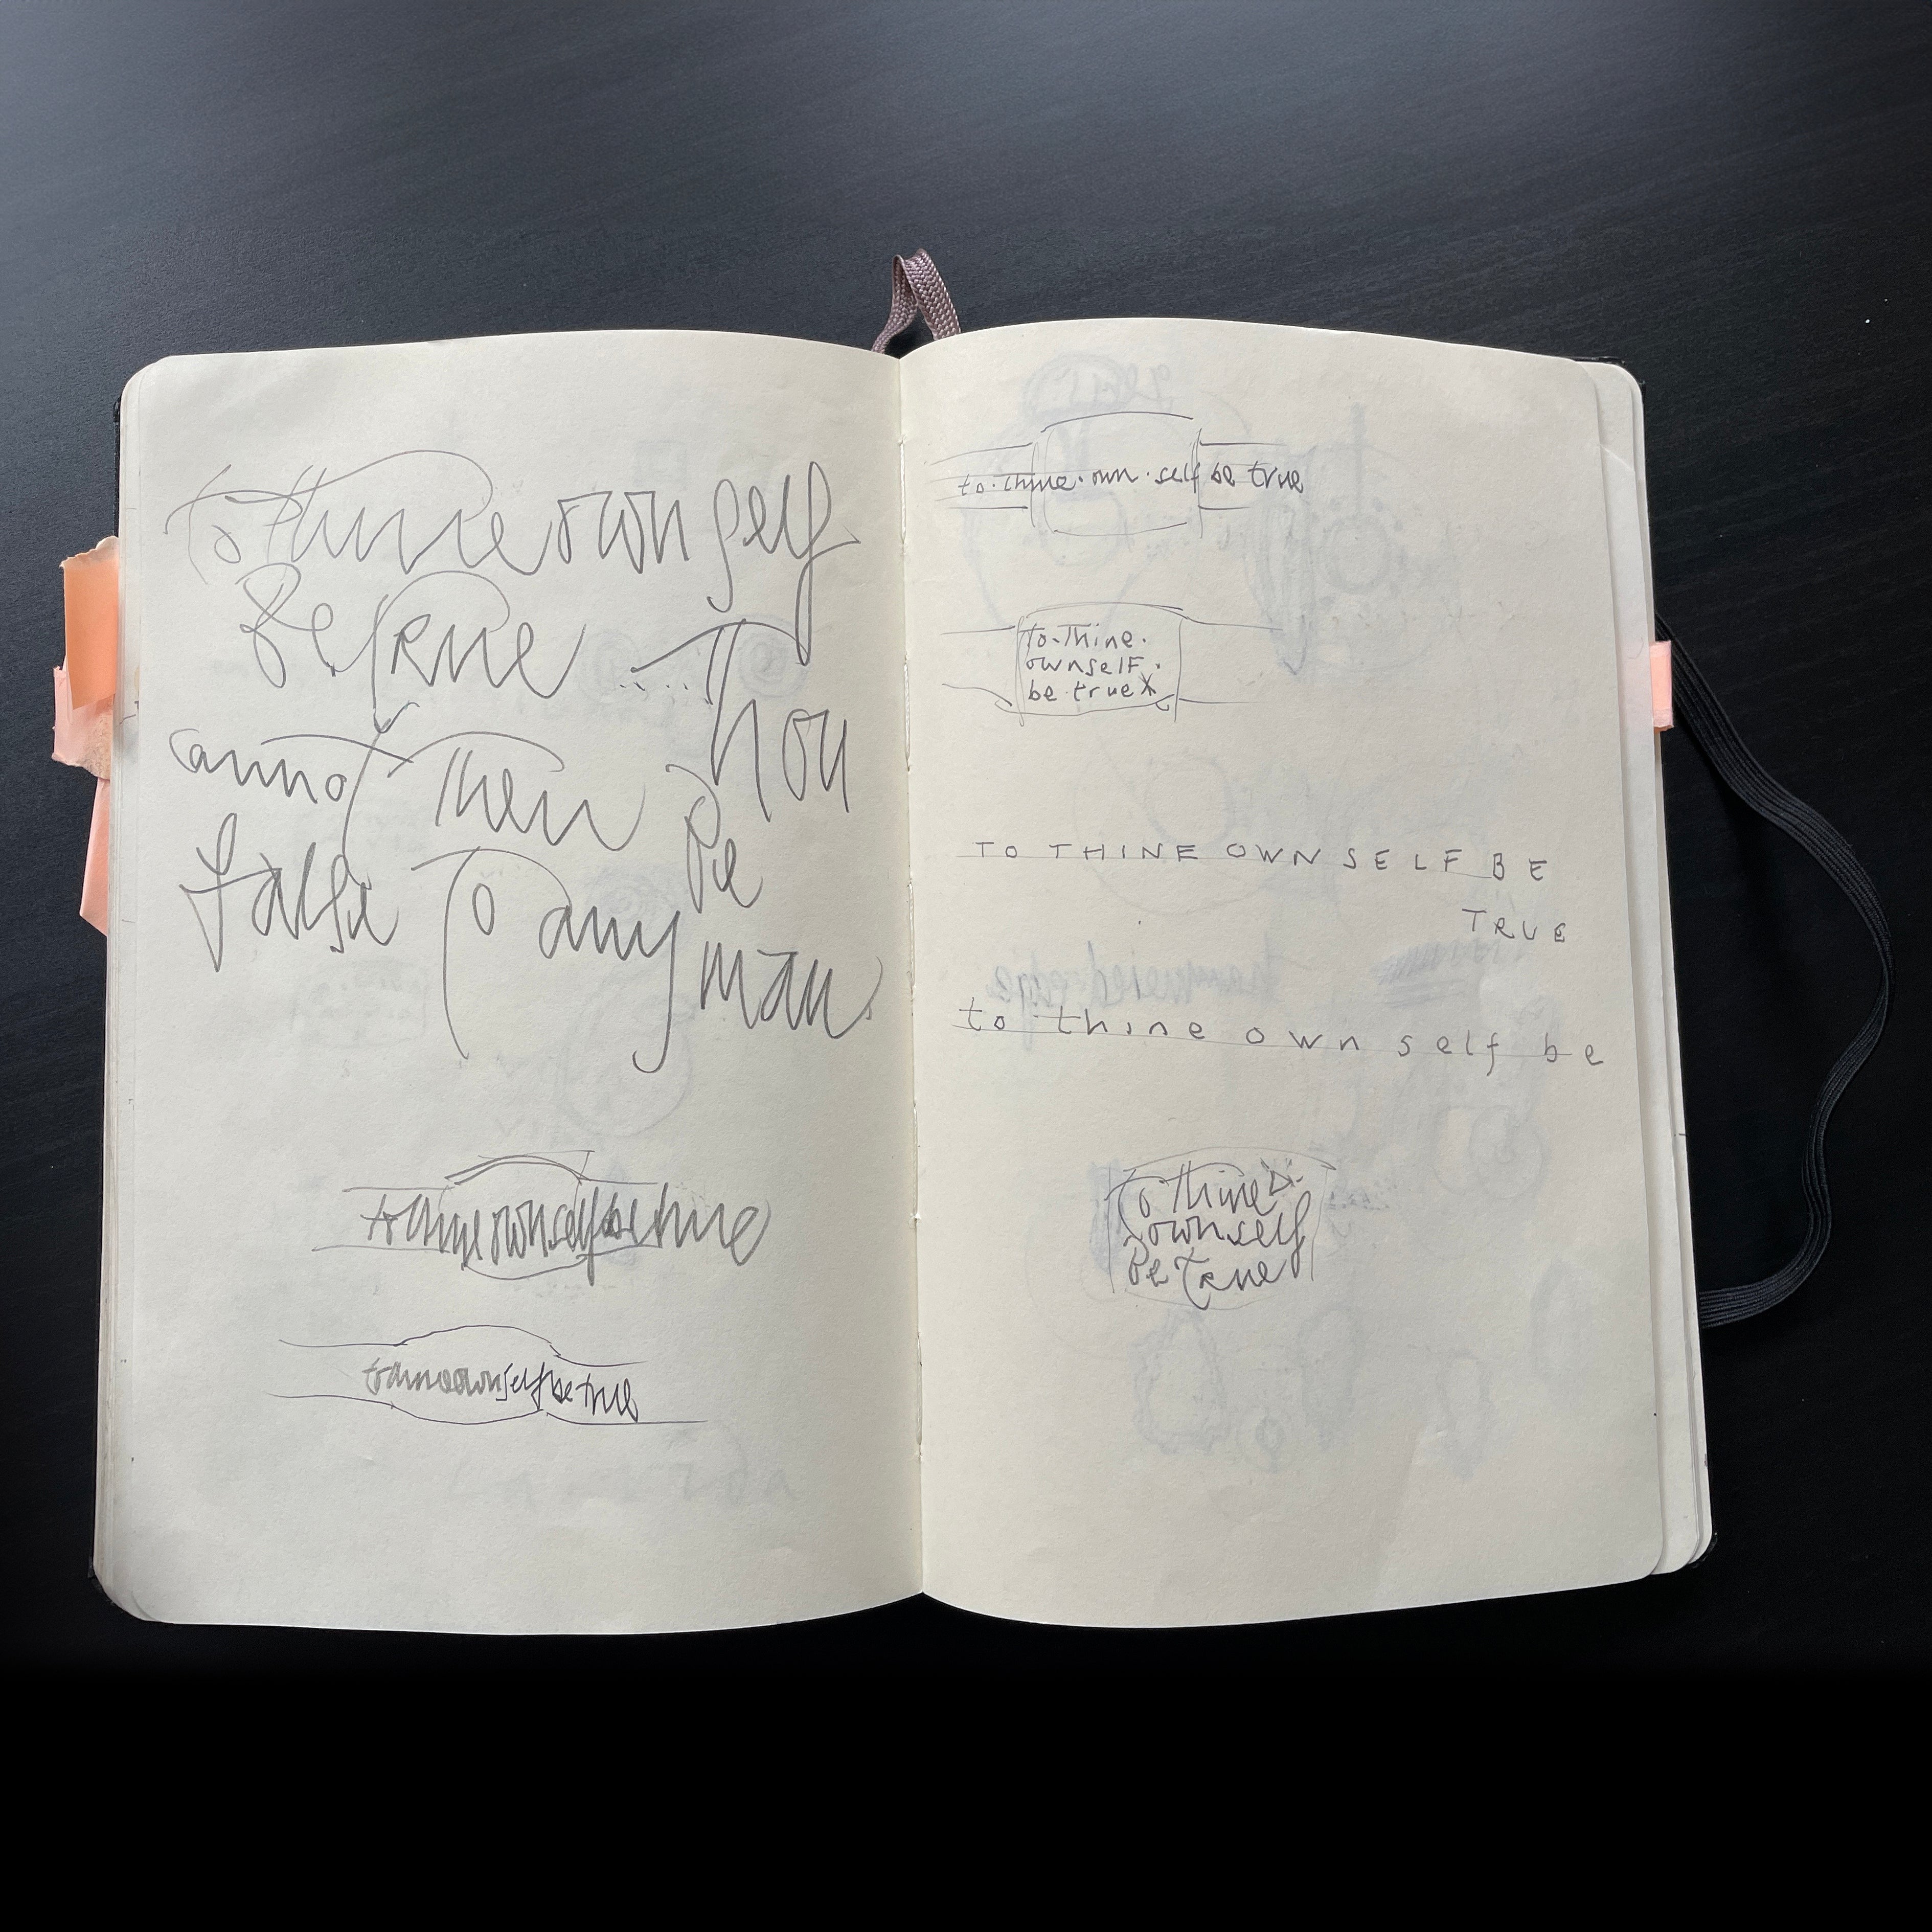 to thine own self
Be True ... Thou
cannot Then Be
false To any man.
to thine own self be true
to thine own self be true
to·thine·own·self be true
To·Thine·
ownself·
be·true
TO THINE OWN SELF BE
TRUE
to thine own self be
To Thine
ownself
Be True